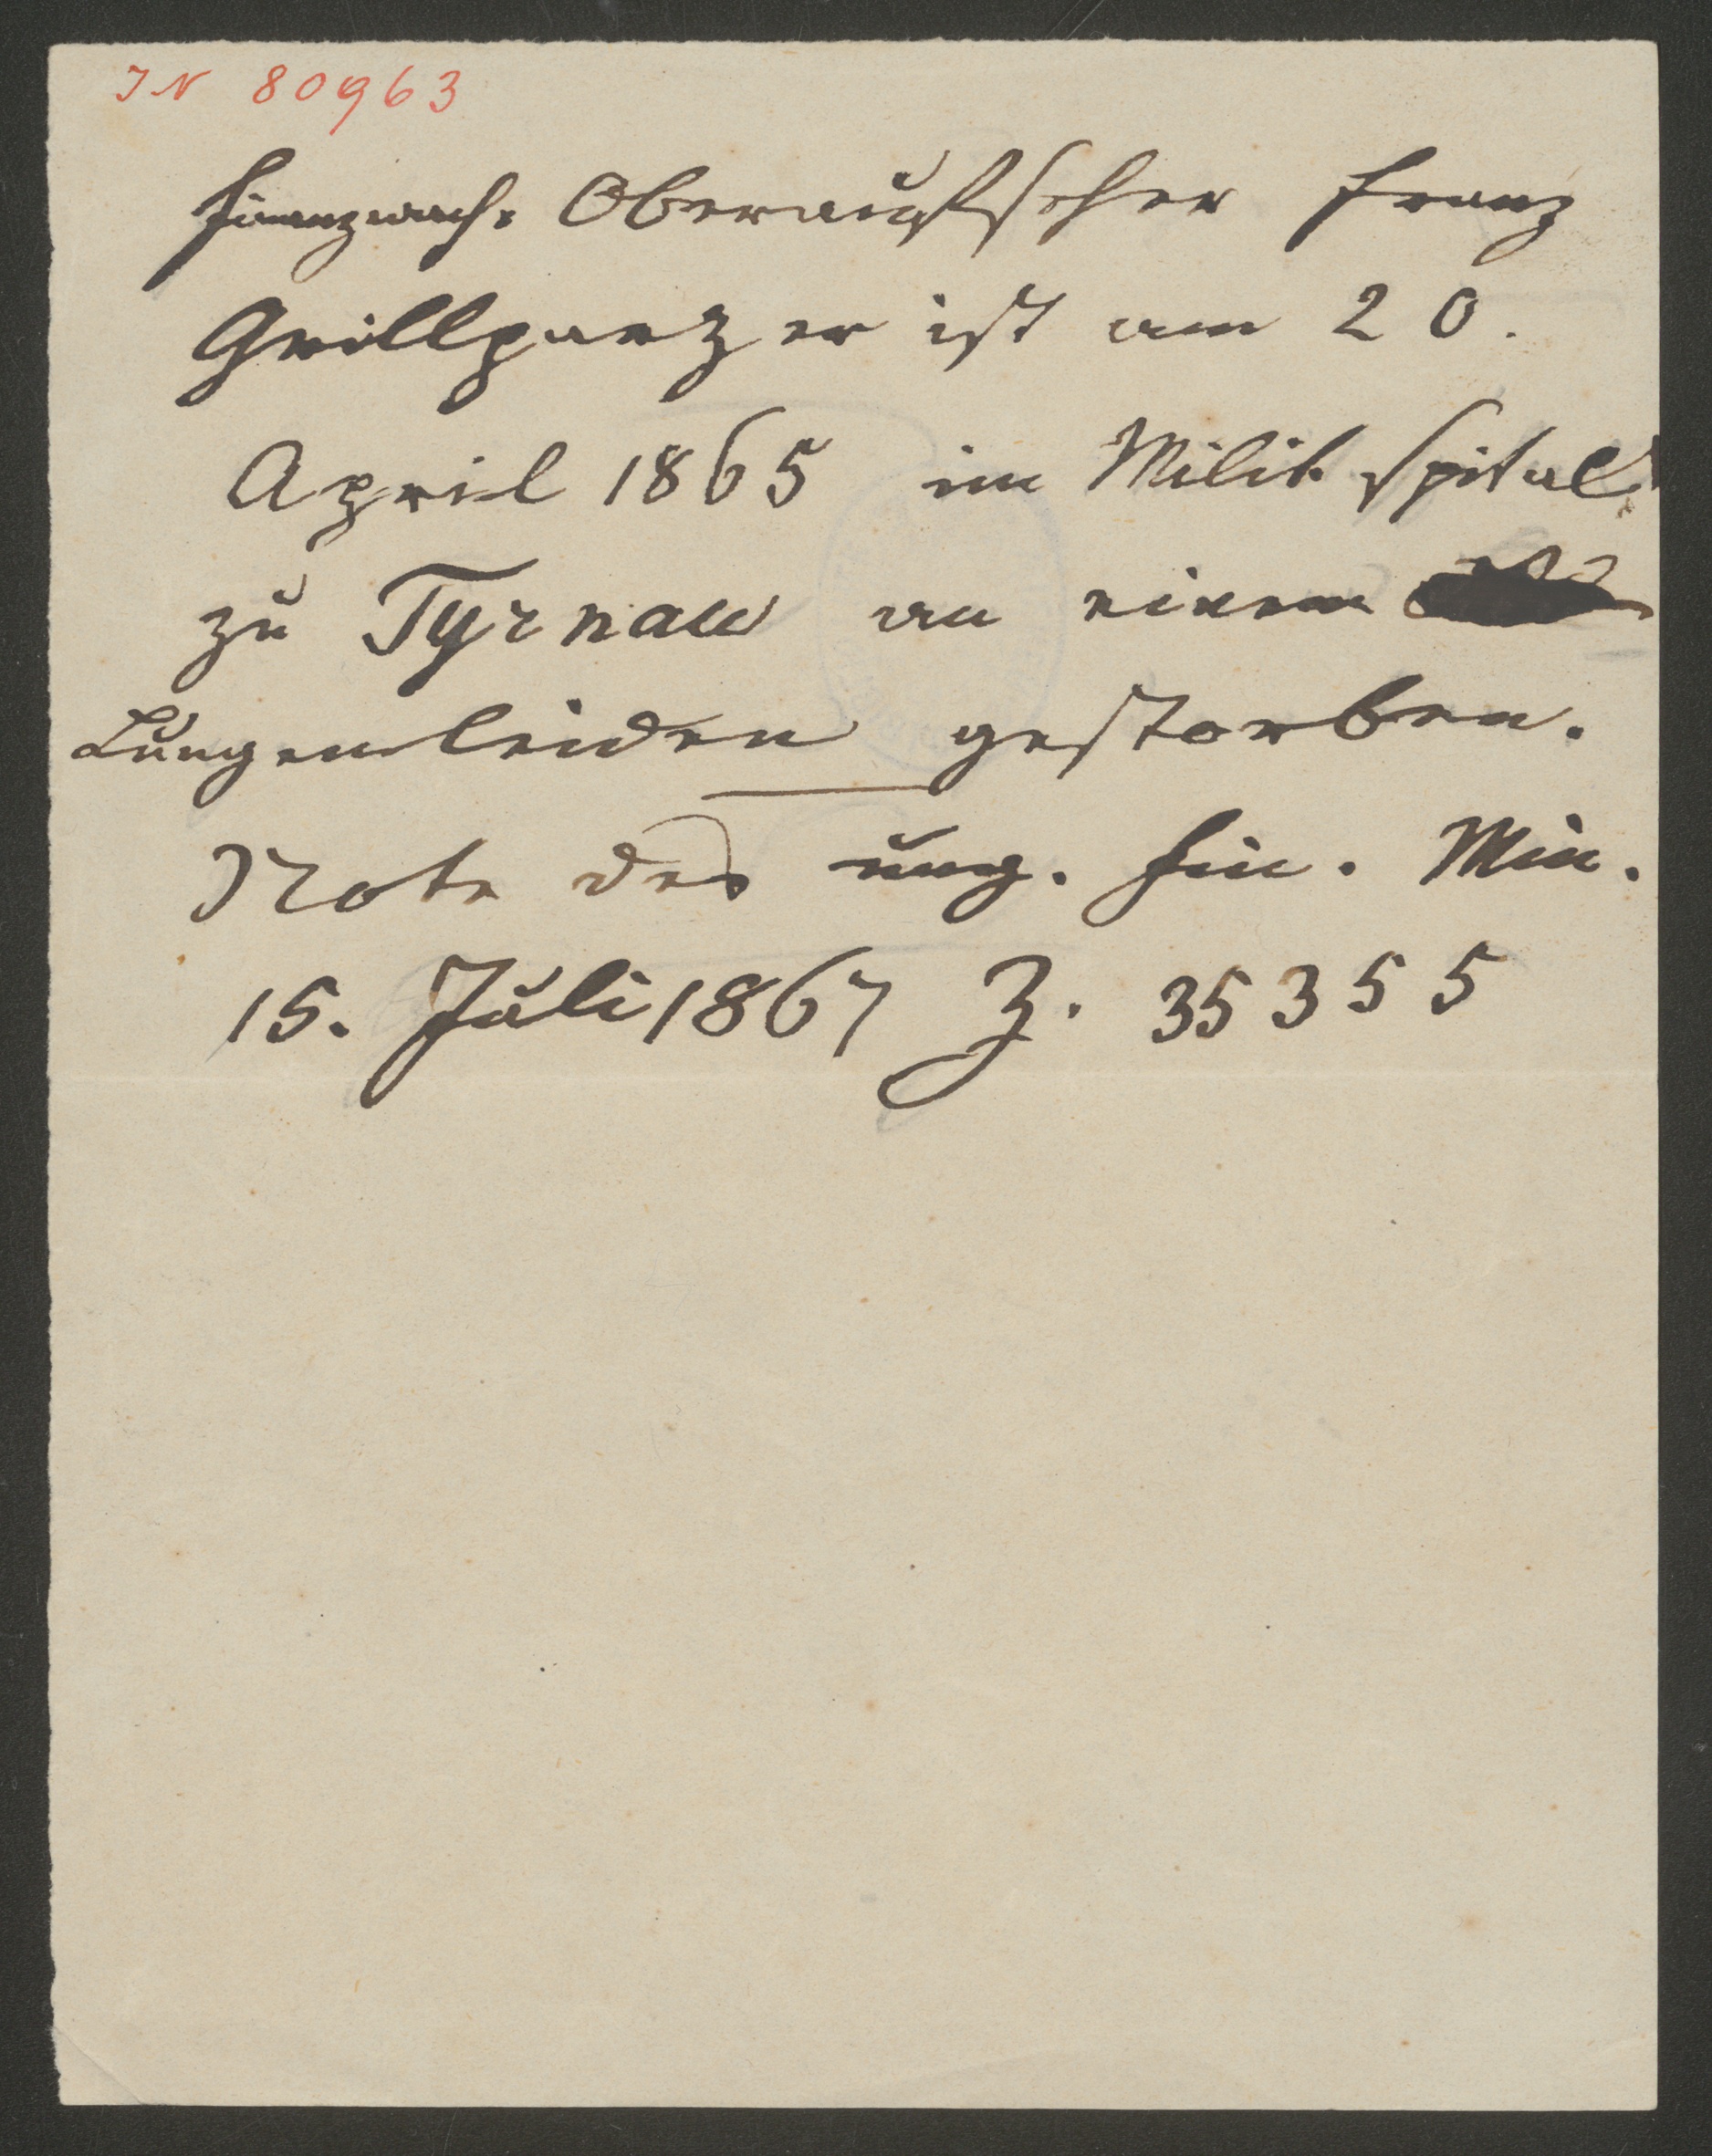 IN 80963
Finanzwach. Oberaufseher Franz
Grillparzer ist am 20.
April 1865 im Milit. Spital
zu Tyrnau an einem
Lungenleiden gestorben.
Note des ung. Fin. Min.
15. Juli 1867 Z. 35355